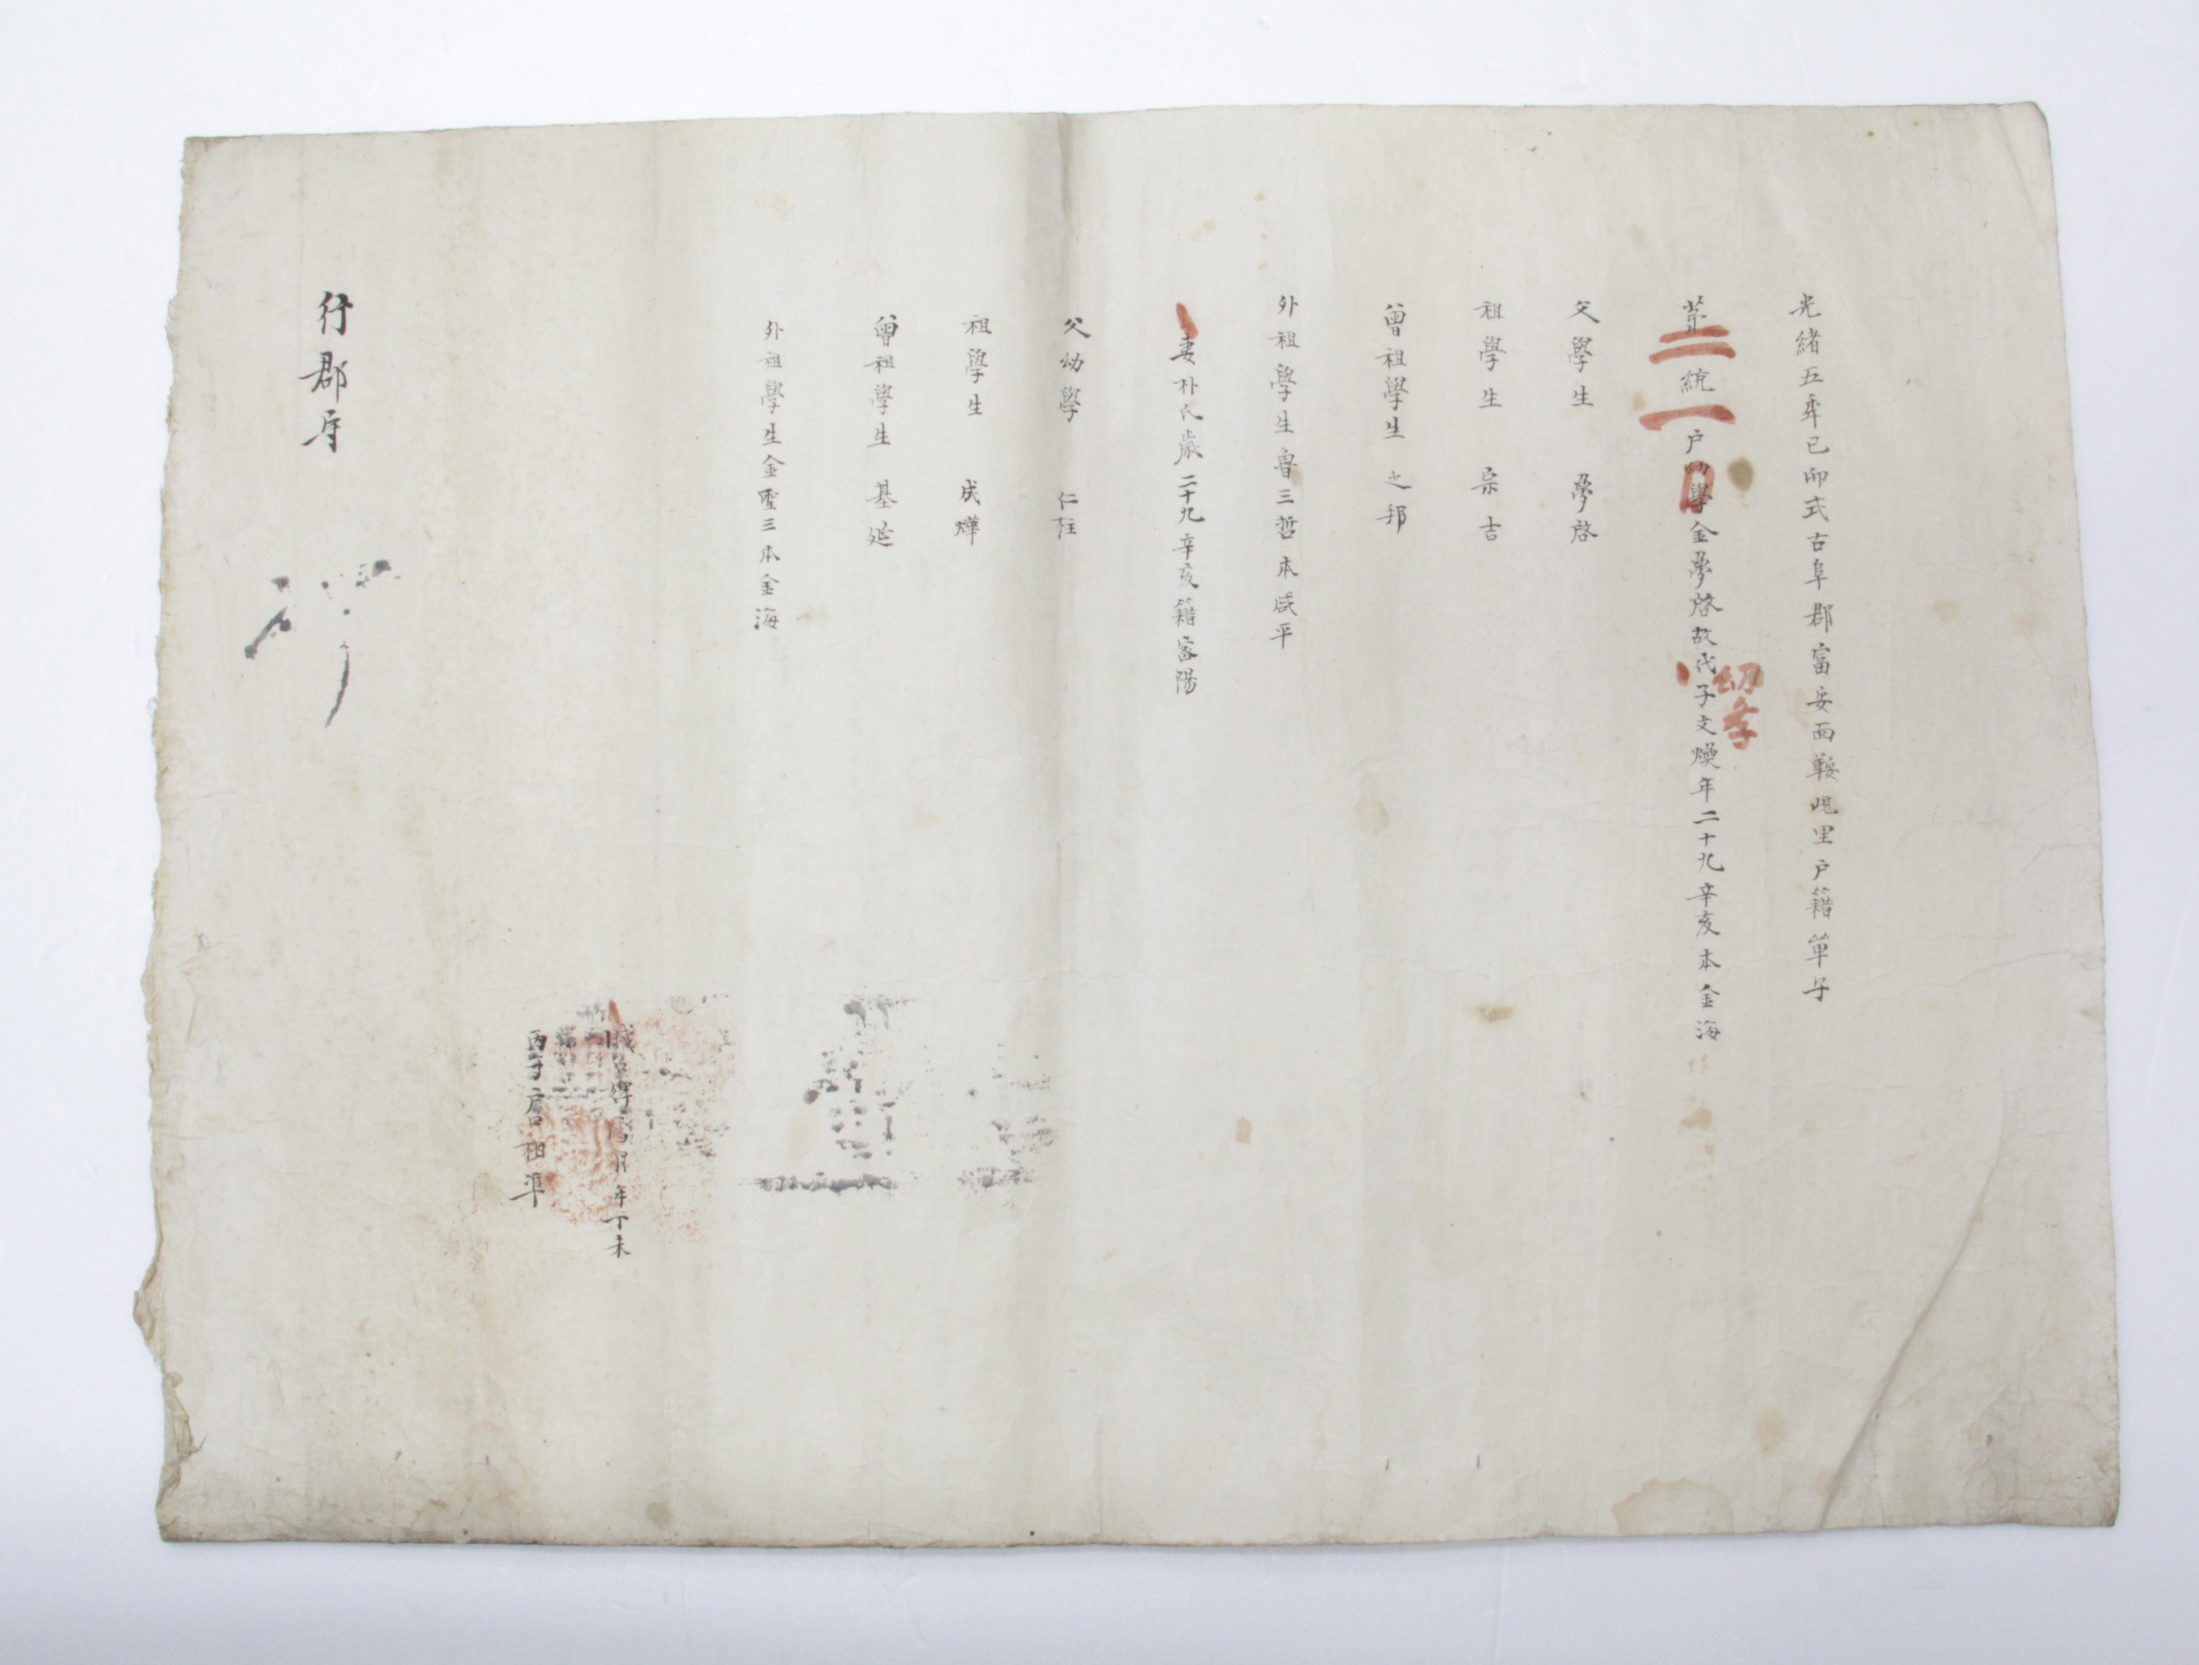 光緖五年己卯式古阜郡富安面鞍峴里戶籍單子
第二統一戶幼學金夢啓故代子文煥年二十九辛亥本金海
幼學
父學生 夢啓
祖學生 宗吉
曾祖學生 之邦
外祖學生魯三哲本咸平
妻朴氏歲二十九辛亥籍密陽
父幼學 仁柱
祖學生 成燁
曾祖學生 基延
外祖學生金聖三本金海
年丁未
丙子戶口相準
行郡守